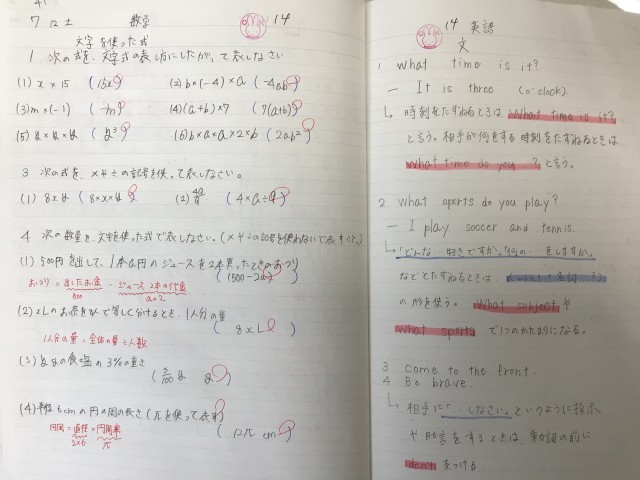 7 12 土 数学 14
文字を使った式
1 次の式を、文字式の表し方にしたがって表しなさい
(1) x × 15 (15x) (2) b×(-4)×a (-4ab)
(3) m×(-1) (-m) (4) (a+b)×7 7(a+b)
(5) (6) b×a×a×2×b (2ab²)
3 次の式を、×や÷の記号を使って表しなさい。
(1) (2) (4×a÷
4 次の数量を、文字を使った式で表しなさい。(×や÷の記号を使わないで表すこと。)
(1) 500円を出して、1本a円のジュースを2本買ったときのおつり
(500-2a)
おつり = 出したお金 - ジュース2本の代金
500 a×2
(2) xLのお茶を 人で等しく分けるとき、1人分の量
1人分の量 = 全体の量 ÷ 人数
(3) の食塩の3%の重さ
(4) 半径6cmの円の周の長さ (πを使って表す)
(12π cm)
円周 = 直径 × 円周率
2×6 π
14 英語
文
1 What time is it?
— It is three (o'clock).
↳ 時刻をたずねるときは、What time is it?
と言う。相手が何をする時刻をたずねるときは
What time do you ? と言う。
2 What sports do you play?
— I play soccer and tennis.
↳ 「どんな 好きですか」「何の をしますか」
などとたずねるときは、
の形を使う。What subject や
What sports で1つのかたまりになる。
3 Come to the front.
4 Be brave.
↳ 相手に「…しなさい」というように指示
や助言をするときは、動詞の前に
don't をつける